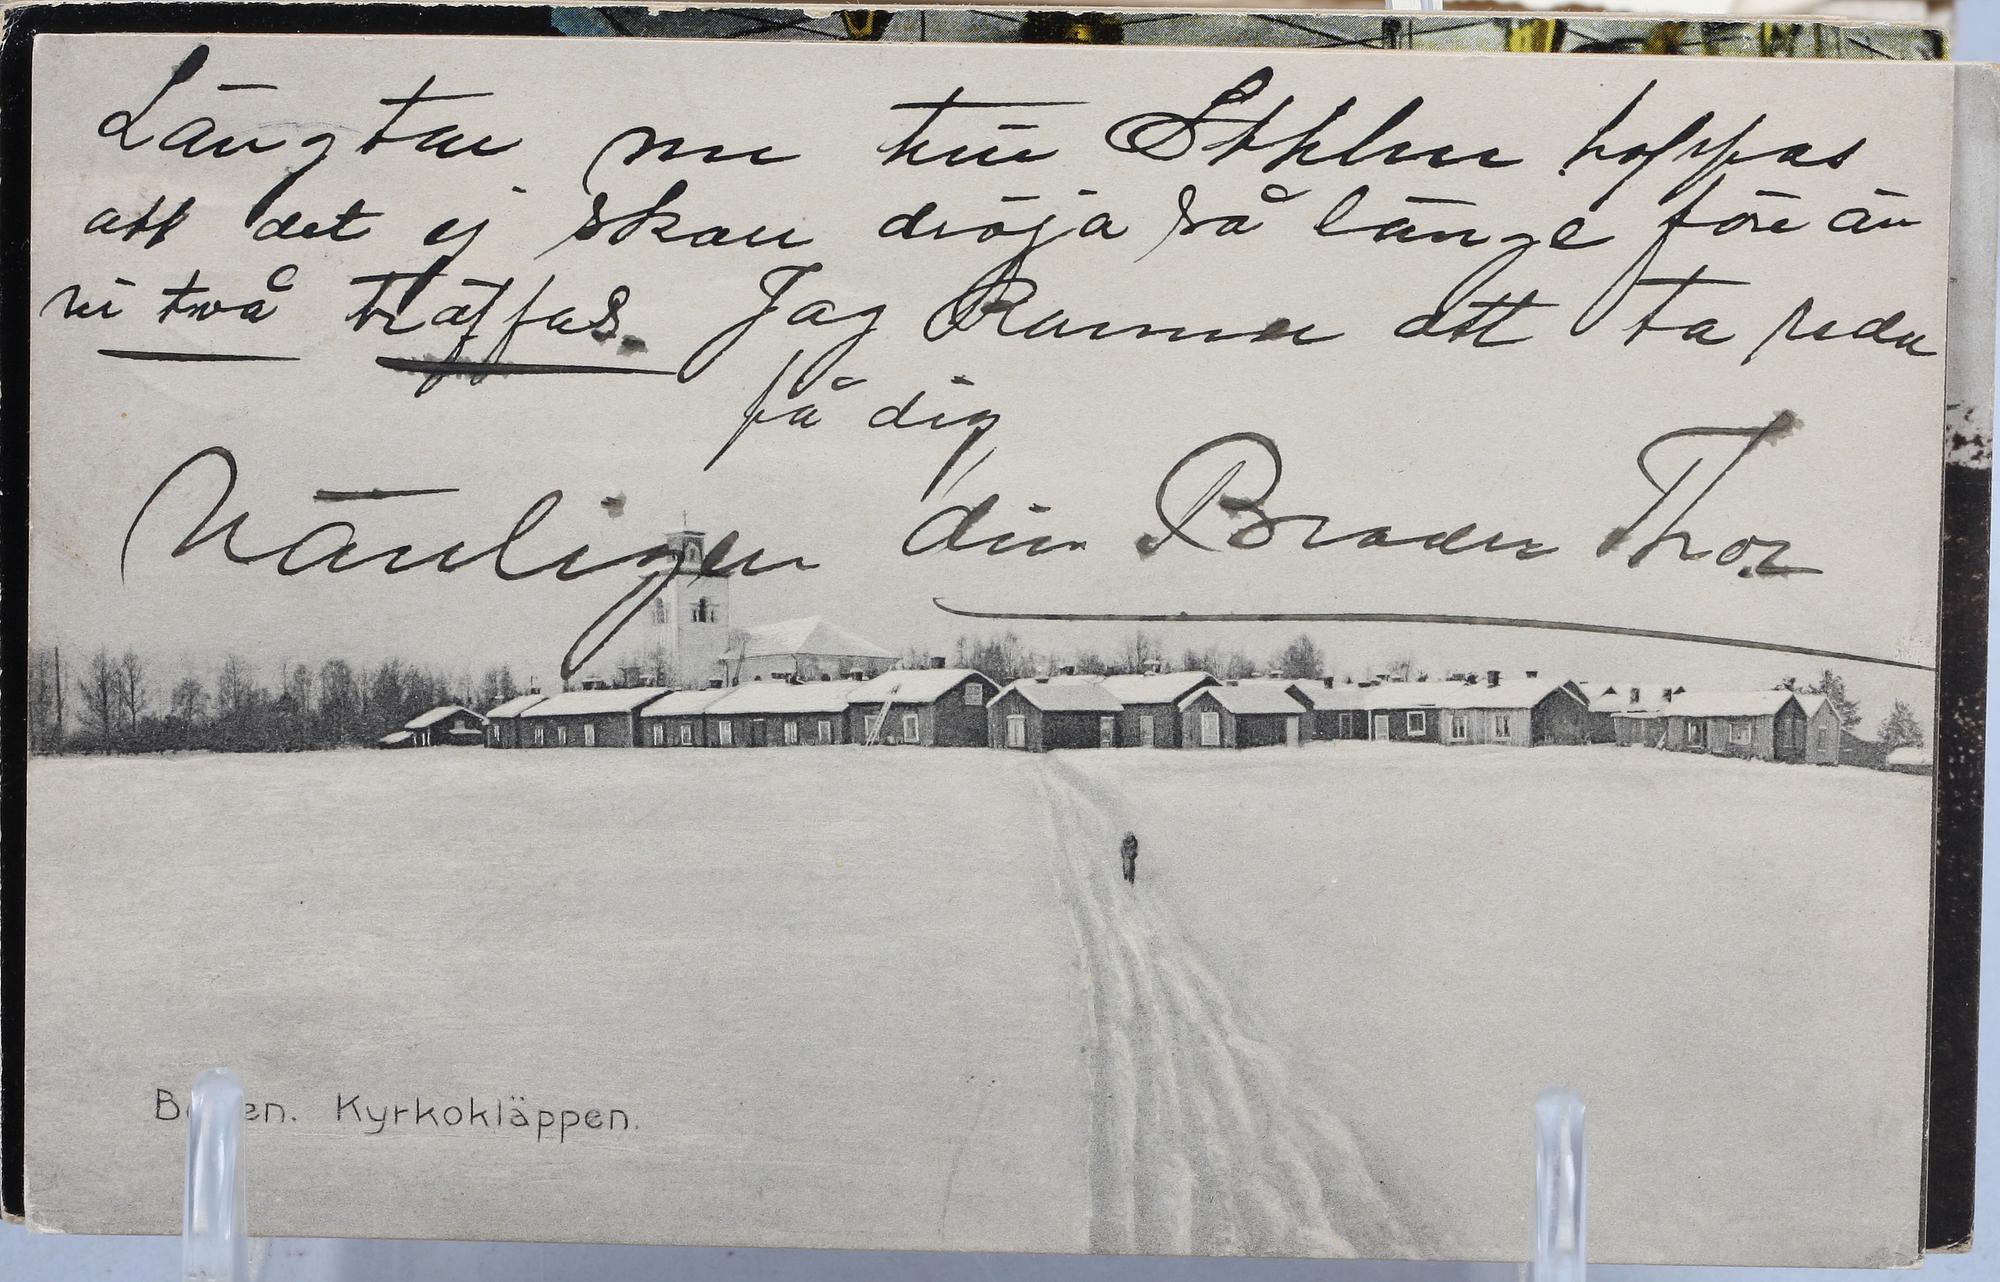 Längtar nu till Sthlm hoppas
att det ej skall dröja så länge före än
vi två träffas. Jag kommer att ta reda
på dig
Vänligen din Broder Thor
B en. Kyrkokläppen.